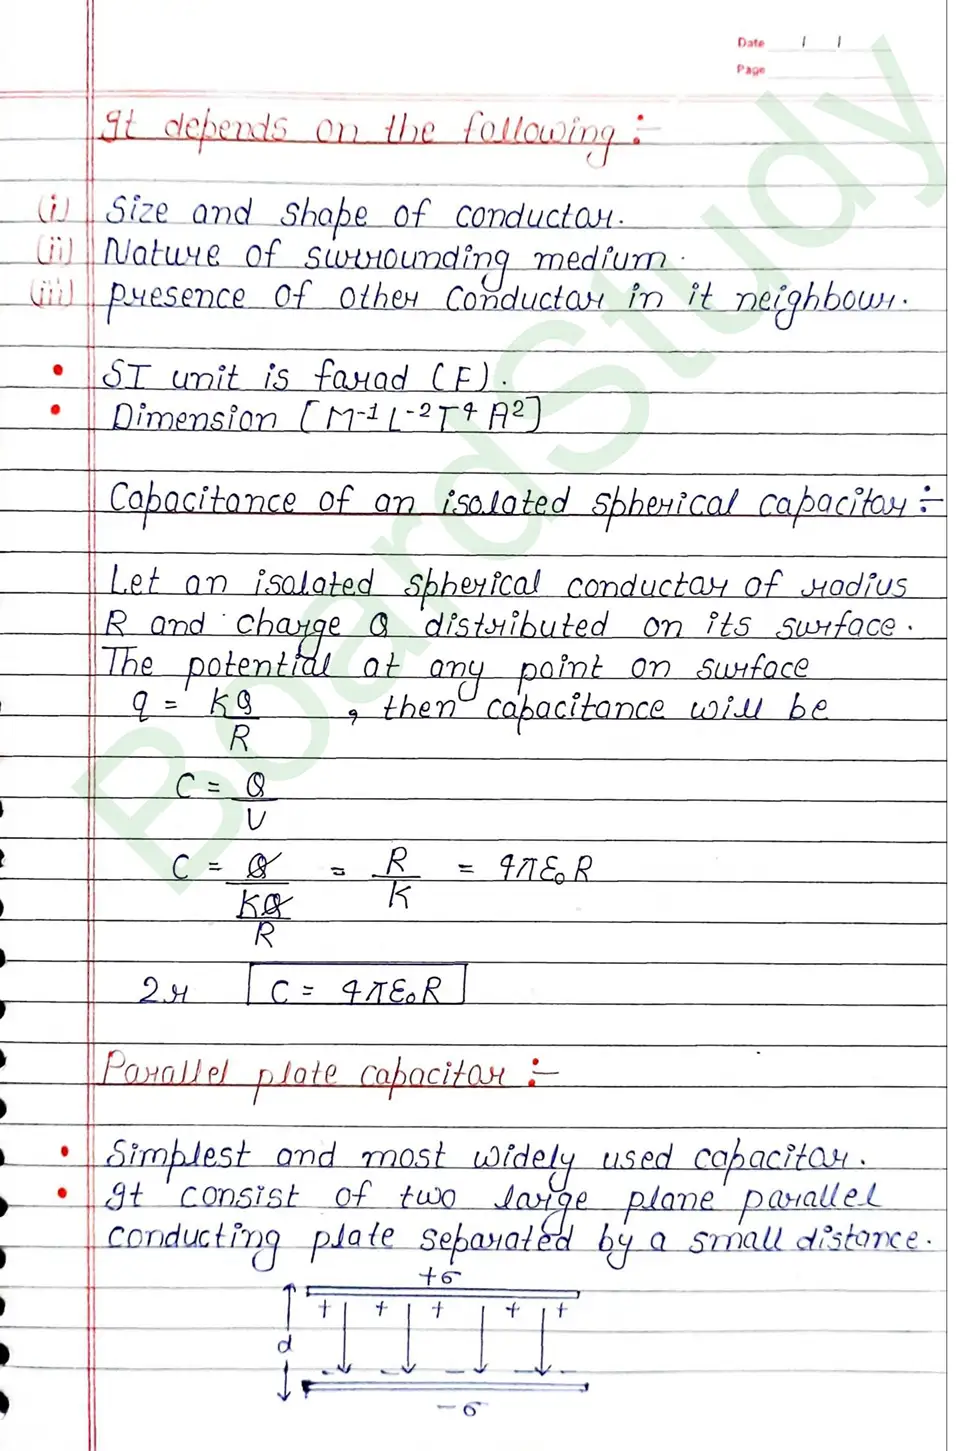 Date / /
Page
It depends on the following :-
(i) Size and shape of conductor.
(ii) Nature of surrounding medium.
(iii) presence of other conductor in it neighbour.
• SI unit is farad (F).
• Dimension [M⁻¹L⁻²T⁴A²]
Capacitance of an isolated spherical capacitor :-
Let an isolated spherical conductor of radius
R and charge Q distributed on its surface.
The potential at any point on surface
q = KQ/R , then capacitance will be
C = Q/V
C = Q/(KQ/R) = R/K = 4πε₀R
C = 4πε₀R
Parallel plate capacitor :-
• Simplest and most widely used capacitor.
• It consist of two large plane parallel
conducting plate separated by a small distance.
+σ
+ + + + +
d
- - - - -
-σ
BoardStudy